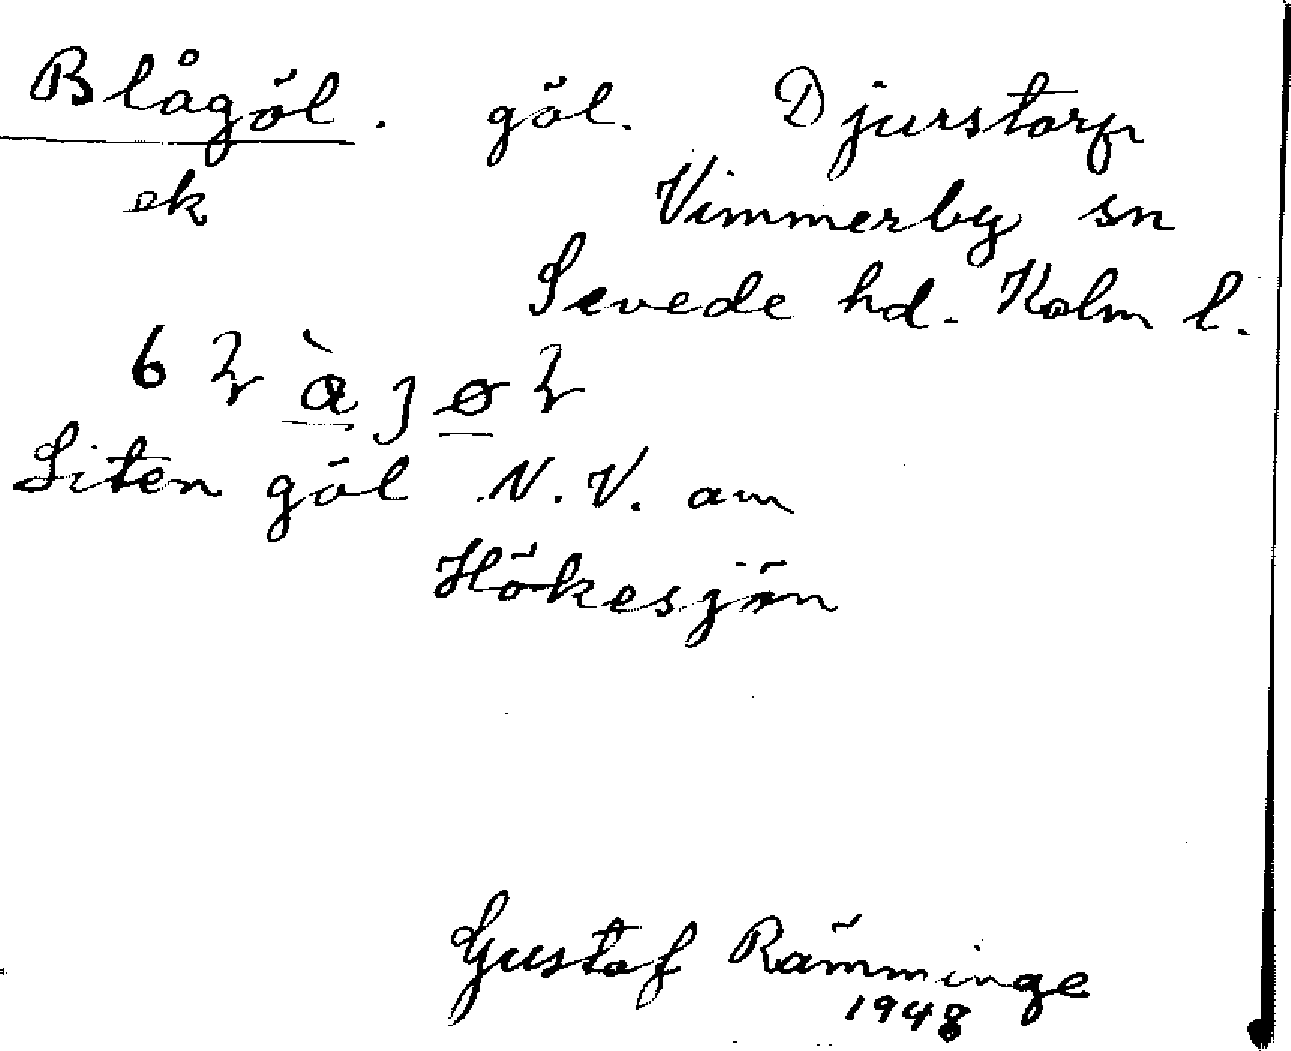 Blågöl. göl. Djurstorp
ek Vimmerby sn
Sevede hd. Kalm l.
Liten göl N.V. om
Hökesjön
Gustaf Rämminge
1948